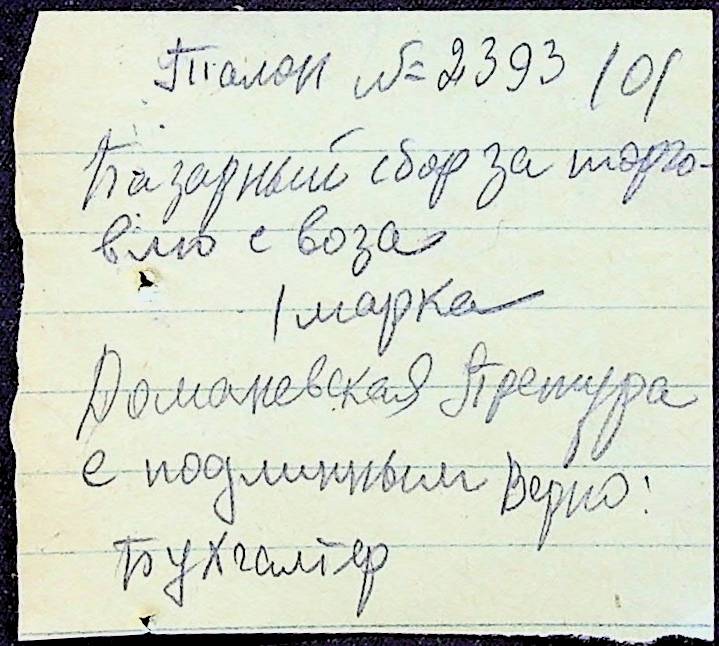 Талон № 2393 101
Базарный сбор за торго-
влю с воза
1 марка
Доманевская Претура
С подлинным Верно:
Бухгалтер